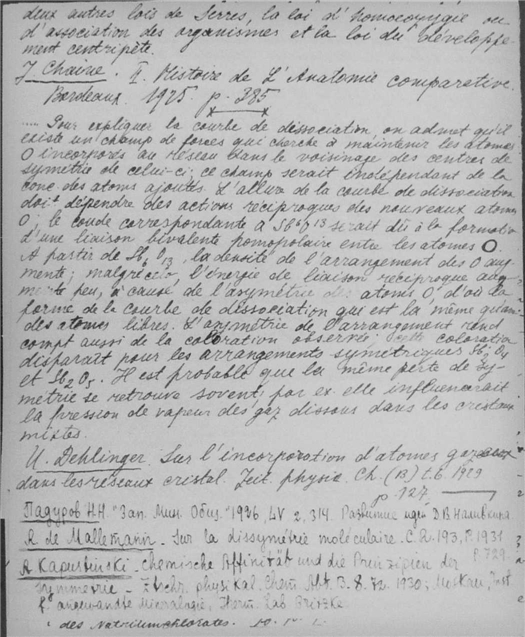 deux autres lois de Serres, la loi d'homoeozygie ou
d'association des organismes et la loi du développe-
ment centripète.
J Chaine. I. Histoire de L'Anatomie comparative.
Bordeaux. 1925. p. 385
..... Pour expliquer la courbe de dissociation, on admet qu'il
existe un champ de forces qui cherche à maintenir les atomes
O incorporés au réseau dans le voisinage des centres de
symétrie de celui-ci; ce champ serait indépendant de la
conc. des atoms ajoutés. L'allure de la courbe de dissociation
doit dépendre des actions réciproques des nouveaux atomes
O; le coude correspondant à Sb6O13 serait dû à la formation
d'une liaison bivalente homopolaire entre les atomes O.
A partir de Sb6O13, la densité de l'arrangement des O aug-
mente; malgré cela, l'énergie de liaison réciproque aug-
mente peu, à cause de l'asymétrie des atoms O, d'où la
forme de le courbe de dissociation que est la même quan
des atomes libres. L'asymétrie de l'arrangement rend
compt aussi de la coloration observée; cette coloration
disparaît pour les arrangements symétriques Sb2O4
et Sb2O5. Il est probable que la même perte de sy-
métrie se retrouve sovent; par ex. elle influencerait
la pression de vapeur des gaz dissous dans les cristaux
mixtes.
U. Dehlinger. Sur l'incorporation d'atomes gazeux
dans les réseaux cristal. Zeit. physic. Ch. (B) t.6. 1929
p. 127.
Падуров Н.Н. "Зап. Мин. Общ." 1926, LV 2, 314. Развитие идеи Д.В. Наливкина
R de Mallemann. Sur la dissymétrie moléculaire. C.R. 193, P. 1931
P. 729.
A Kapustinski. Chemische Affinität und die Prinzipien der
Symmetrie - Ztschr. physikal. Chem. Abt. B. 8. 72. 1930; Moskau, Inst
f. angewandte Mineralogie, Therm. Lab.
des Natriumchlorates.